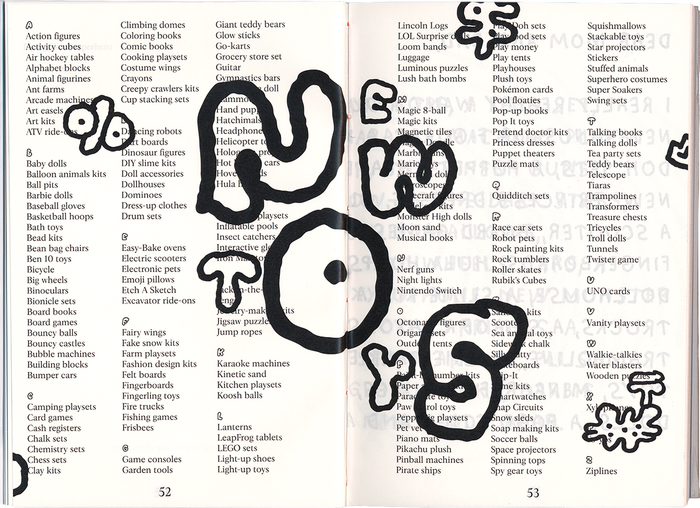 A
Action figures
Activity cubes
Air hockey tables
Alphabet blocks
Animal figurines
Ant farms
Arcade machines
Art easels
Art kits
ATV ride-
B
Baby dolls
Balloon animals kits
Ball pits
Barbie dolls
Baseball gloves
Basketball hoops
Bath toys
Bead kits
Bean bag chairs
Ben 10 toys
Bicycle
Big wheels
Binoculars
Bionicle sets
Board books
Board games
Bouncy balls
Bouncy castles
Bubble machines
Building blocks
Bumper cars
C
Camping playsets
Card games
Cash registers
Chalk sets
Chemistry sets
Chess sets
Clay kits
Climbing domes
Coloring books
Comic books
Cooking playsets
Costume wings
Crayons
Creepy crawlers kits
Cup stacking sets
D
racing robots
boards
Dinosaur figures
DIY slime kits
Doll accessories
Dollhouses
Dominoes
Dress-up clothes
Drum sets
E
Easy-Bake ovens
Electric scooters
Electronic pets
Emoji pillows
Etch A Sketch
Excavator ride-ons
F
Fairy wings
Fake snow kits
Farm playsets
Fashion design kits
Felt boards
Fingerboards
Fingerling toys
Fire trucks
Fishing games
Frisbees
G
Game consoles
Garden tools
Giant teddy bears
Glow sticks
Go-karts
Grocery store set
Guitar
Gymnastics bars
doll
Hand
Hatchimals
Headphone
Helicopter
cars
Hula
playsets
Inflatable pools
Insect catchers
Interactive
Jigsaw puzzles
Jump ropes
K
Karaoke machines
Kinetic sand
Kitchen playsets
Koosh balls
L
Lanterns
LeapFrog tablets
LEGO sets
Light-up shoes
Light-up toys
52
NEW
TOYS
Lincoln Logs
LOL Surprise
Loom bands
Luggage
Luminous puzzles
Lush bath bombs
M
Magic 8-ball
Magic kits
Magnetic tiles
Monster High dolls
Moon sand
Musical books
N
Nerf guns
Night lights
Nintendo Switch
O
Octonauts figures
Origami sets
Outdoor tents
P
number kits
Paper
Paw Patrol toys
Peppa Pig playsets
Pet vet
Piano mats
Pikachu plush
Pinball machines
Pirate ships
Play-Doh sets
Play food sets
Play money
Play tents
Playhouses
Plush toys
Pokémon cards
Pool floaties
Pop-up books
Pop It toys
Pretend doctor kits
Princess dresses
Puppet theaters
Puzzle mats
Q
Quidditch sets
R
Race car sets
Robot pets
Rock painting kits
Rock tumblers
Roller skates
Rubik's Cubes
S
kits
Scooters
Sea animal toys
Sidewalk chalk
Silly Putty
Smartwatches
Snap Circuits
Snow sleds
Soap making kits
Soccer balls
Space projectors
Spinning tops
Spy gear toys
Squishmallows
Stackable toys
Star projectors
Stickers
Stuffed animals
Superhero costumes
Super Soakers
Swing sets
T
Talking books
Talking dolls
Tea party sets
Teddy bears
Telescope
Tiaras
Trampolines
Transformers
Treasure chests
Tricycles
Troll dolls
Tunnels
Twister game
U
UNO cards
V
Vanity playsets
W
Walkie-talkies
Water blasters
Wooden puzzles
X
Z
Ziplines
53